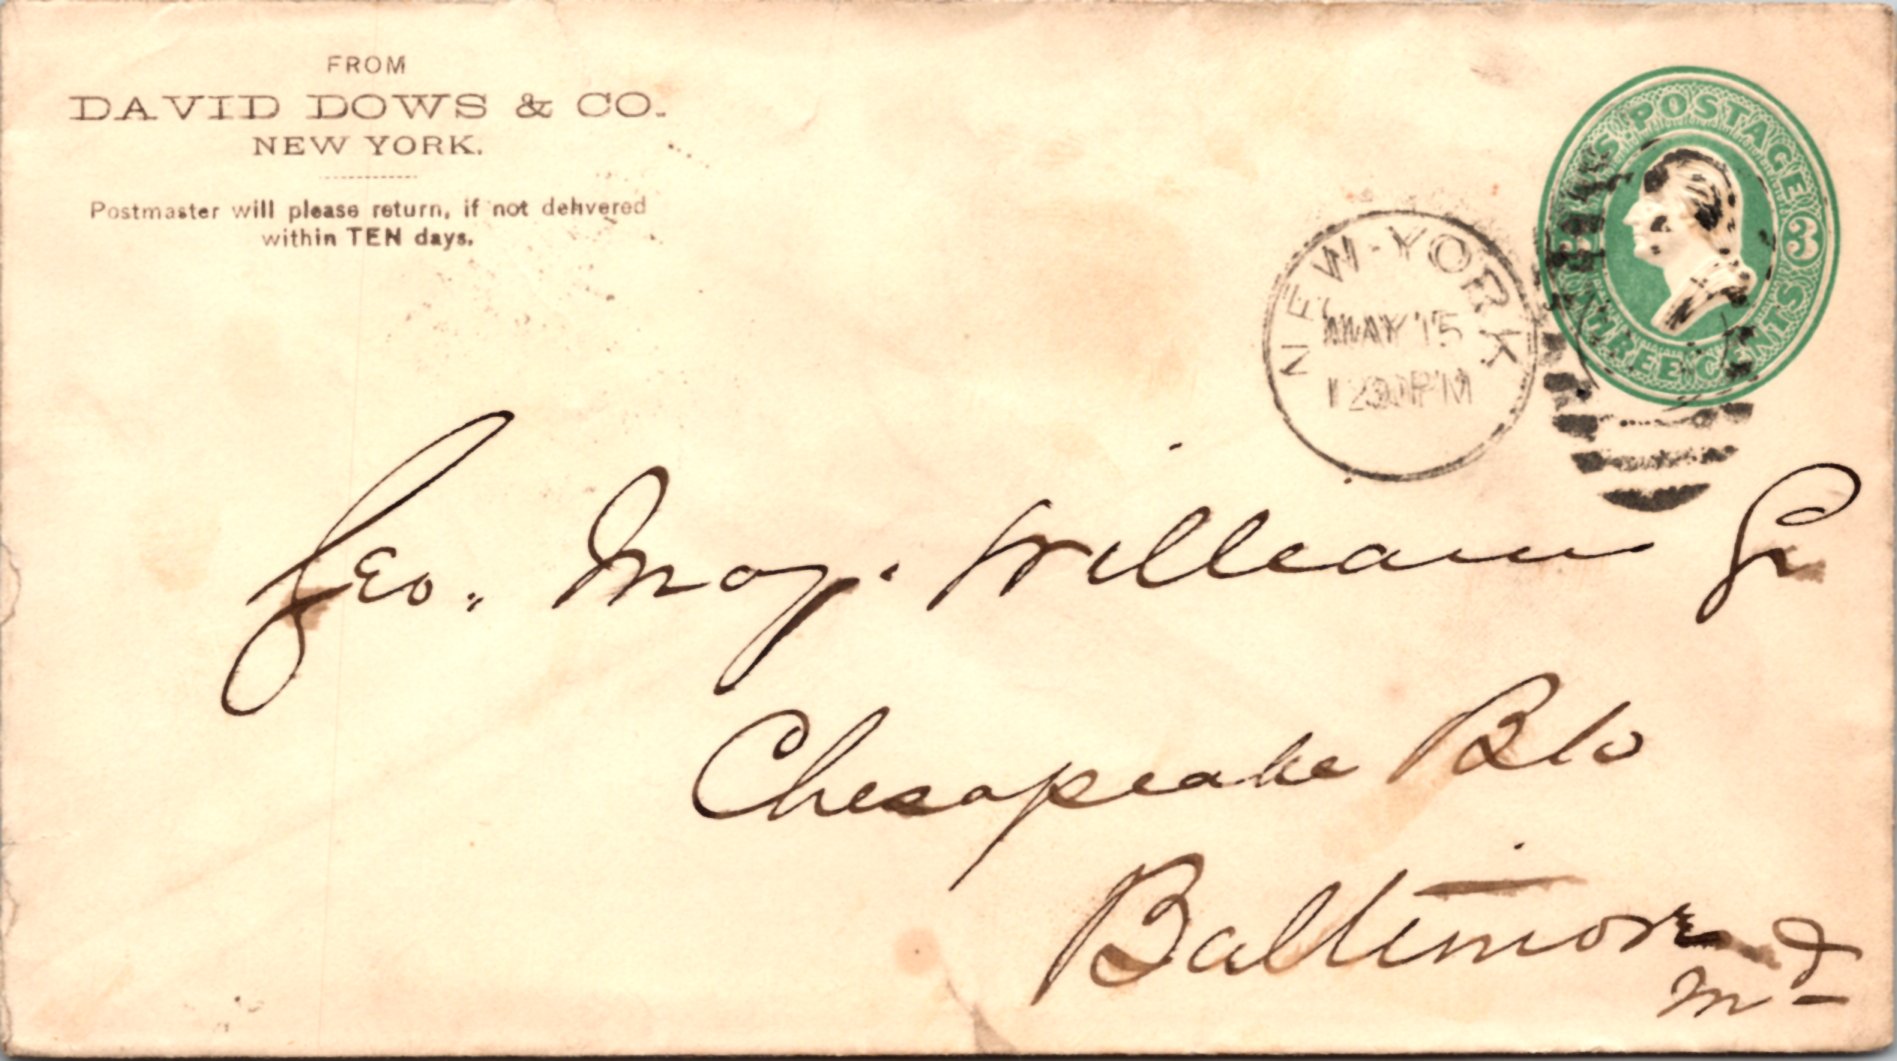 FROM
DAVID DOWS & CO.
NEW YORK.
Postmaster will please return, if not delivered
within TEN days.
U.S. POSTAGE
3
THREE CENTS
NEW-YORK
MAY 15
1230PM
Geo. May. William Jr
Chesapeake Blo
Baltimore
Md